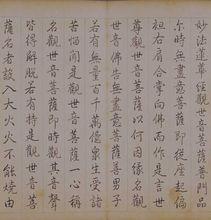 妙法蓮華經觀世音菩薩普門品
尒時無盡意菩薩即從座起偏
袒右肩合掌向佛而作是言世
尊觀世音菩薩以何因緣名觀
世音佛告無盡意菩薩善男子
若有無量百千萬億衆生受諸
苦惱聞是觀世音菩薩一心稱
名觀世音菩薩即時觀其音聲
皆得解脫若有持是觀世音菩
薩名者設入大火火不能燒由